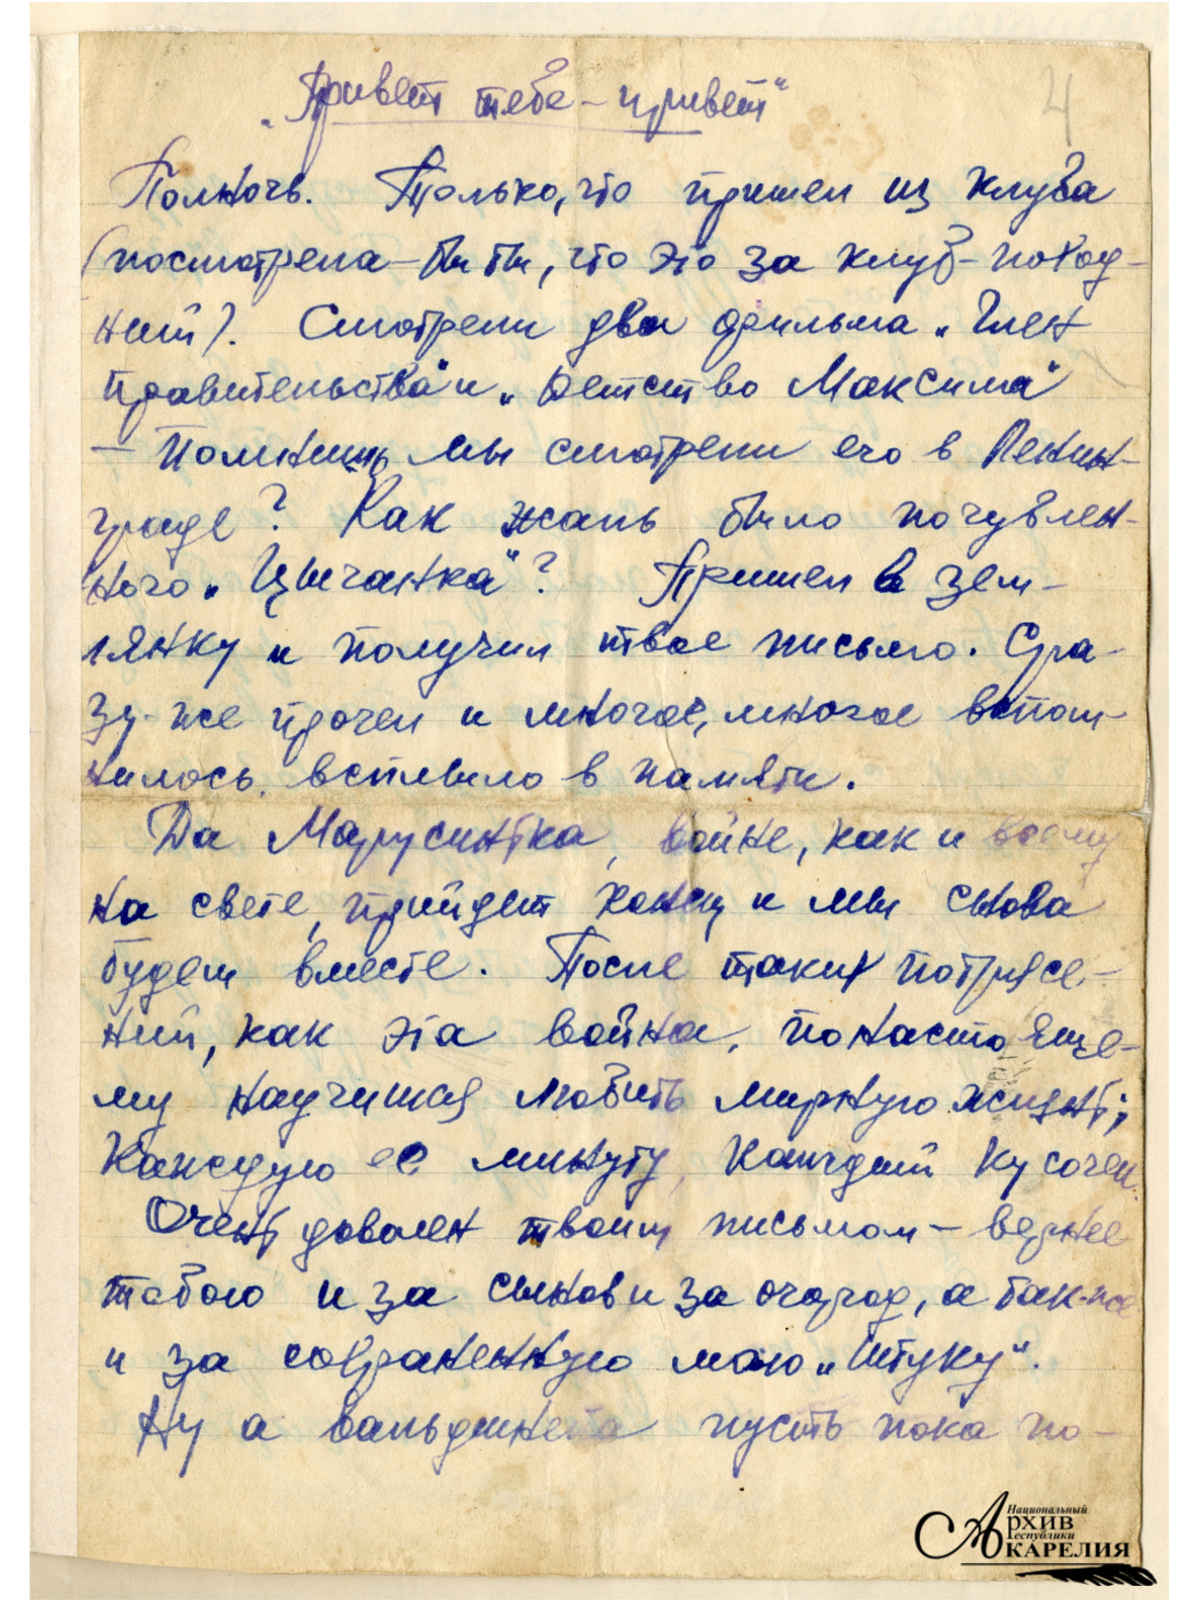 „Привет тебе – привет"
4
Полночь. Только, что пришел из клуба
(посмотрела-бы ты, что это за клуб – поход-
ный). Смотрели два фильма „Член
правительства" и „Детство Максима"
– Помнишь мы смотрели его в Ленин-
граде? Как жаль было погубленного
ного „Цыганка"? Пришел в зем-
лянку и получил твое письмо. Сра-
зу-же прочел и многое, многое вспом-
нилось, всплыло в памяти.
Да Марусинька, войне, как и всему
на свете, прийдет конец и мы снова
будем вместе. После таких потрясе-
ний, как эта война, понастояще-
му научишся любить мирную жизнь;
Каждую ее минуту, каждый кусочек.
Очень доволен твоим письмом – вернее
тобою и за сынов и за огород, а так-же
и за сохраненную мою „штуку".
Ну а вальдшнепа пусть пока по-
Национальный
Архив
Республики
Карелия